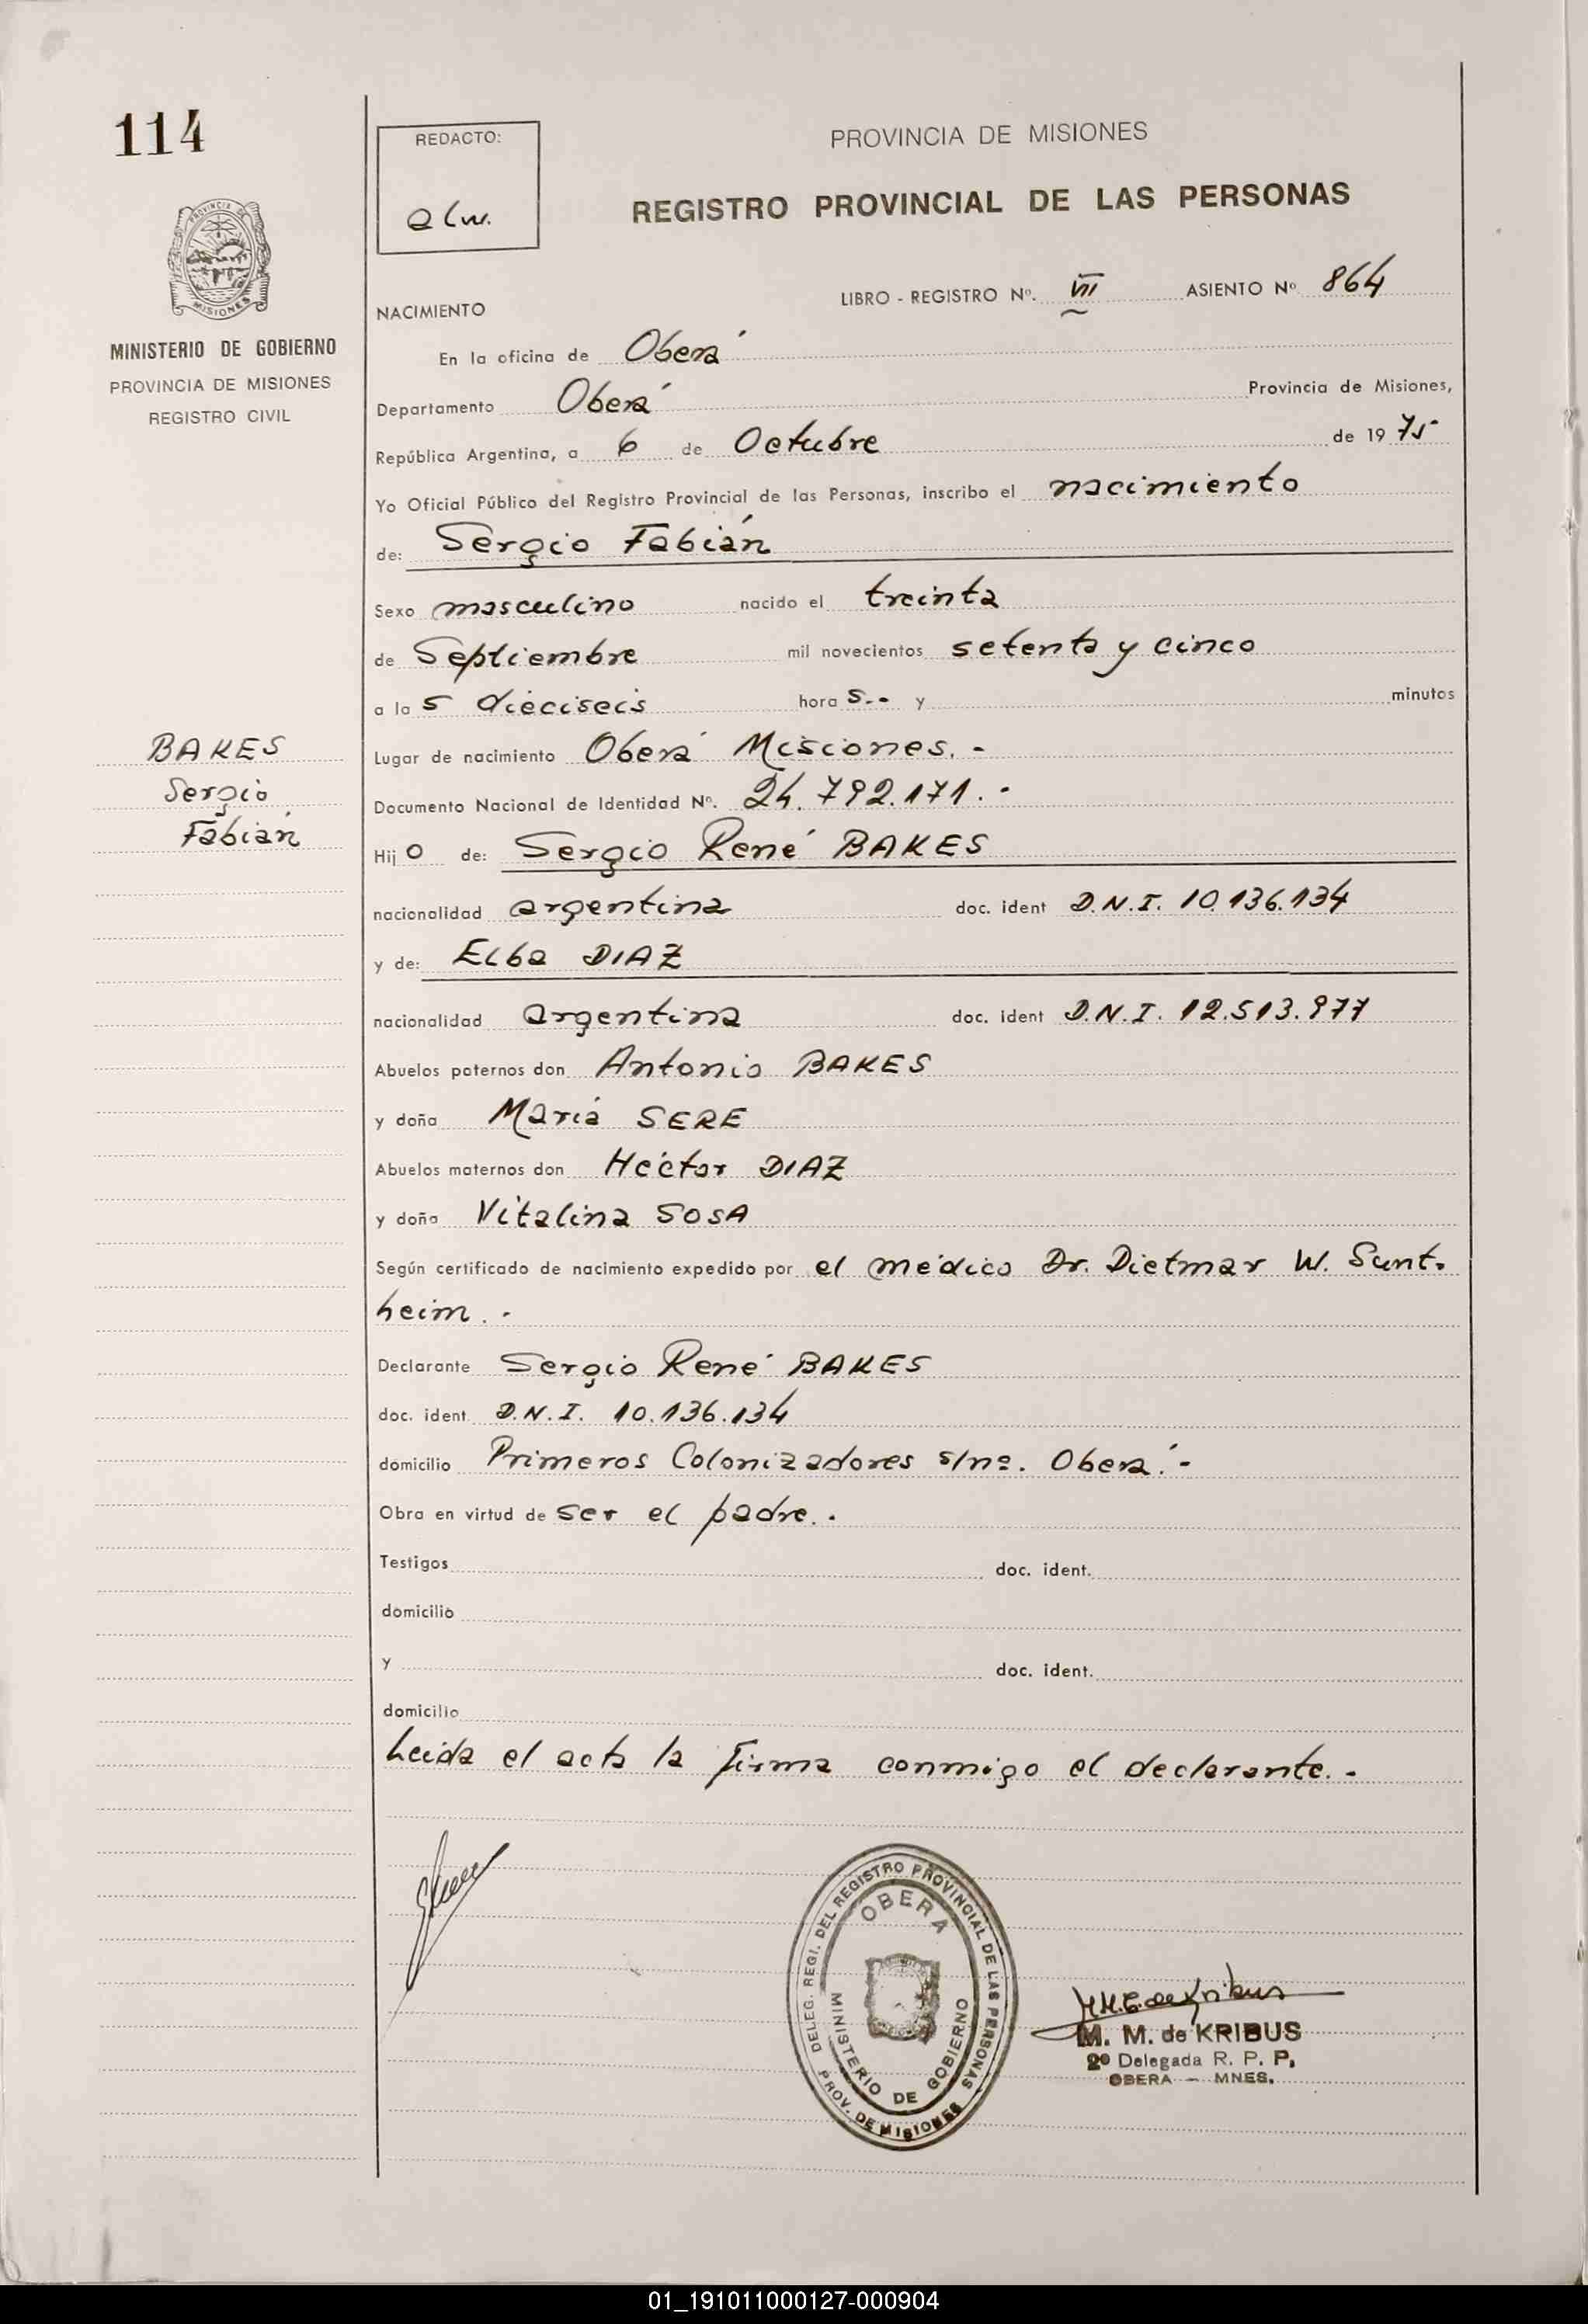 114
REDACTO:
PROVINCIA DE MISIONES
REGISTRO PROVINCIAL DE LAS PERSONAS
PROVINCIA DE
MISIONES
MINISTERIO DE GOBIERNO
PROVINCIA DE MISIONES
REGISTRO CIVIL
LIBRO - REGISTRO Nº. VII ASIENTO Nº 864
NACIMIENTO
En la oficina de Oberá
Departamento Oberá Provincia de Misiones,
República Argentina, a 6 de Octubre de 1975
Yo Oficial Público del Registro Provincial de las Personas, inscribo el nacimiento
de: Sergio Fabián
Sexo masculino nacido el treinta
de Septiembre mil novecientos setenta y cinco
a la s dieciseis hora s.- y minutos
BAKES
Sergio
Fabián
Lugar de nacimiento Oberá Misiones.-
Documento Nacional de Identidad Nº. 24.792.171.-
Hij o de: Sergio René BAKES
nacionalidad argentina doc. ident D.N.I. 10.136.134
y de: Elba DIAZ
nacionalidad argentina doc. ident D.N.I. 12.513.977
Abuelos paternos don Antonio BAKES
y doña María SERE
Abuelos maternos don Héctor DIAZ
y doña Vitalina SOSA
Según certificado de nacimiento expedido por el médico Dr. Dietmar W. Sunt-
heim.-
Declarante Sergio René BAKES
doc. ident. D.N.I. 10.136.134
domicilio Primeros Colonizadores s/nº. Oberá.-
Obra en virtud de ser el padre.-
Testigos doc. ident.
domicilio
y doc. ident.
domicilio
Leida el acta la firma conmigo el declarante.-
DELEG. REGI. DEL REGISTRO PROVINCIAL DE LAS PERSONAS
OBERA
MINISTERIO DE GOBIERNO
PROV. DE MISIONES
M. M. de KRIBUS
2º Delegada R. P. P.
OBERA - MNES.
01_191011000127-000904